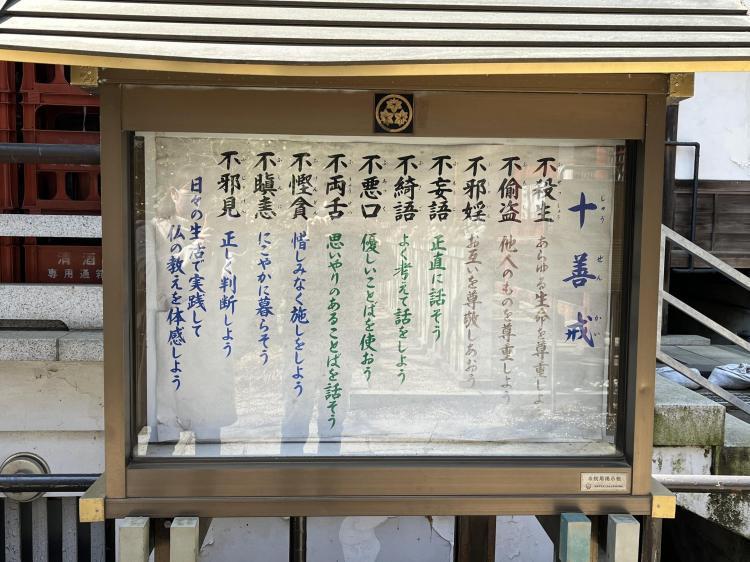 十善戒
じゅうぜんかい
不殺生 あらゆる生命を尊重しよう
不偸盗 他人のものを尊重しよう
不邪婬 お互いを尊敬しあおう
不妄語 正直に話そう
不綺語 よく考えて話をしよう
不悪口 優しいことばを使おう
不両舌 思いやりのあることばを話そう
不慳貪 惜しみなく施しをしよう
不瞋恚 にこやかに暮らそう
不邪見 正しく判断しよう
日々の生活で実践して
仏の教えを体感しよう
清酒
専用通箱